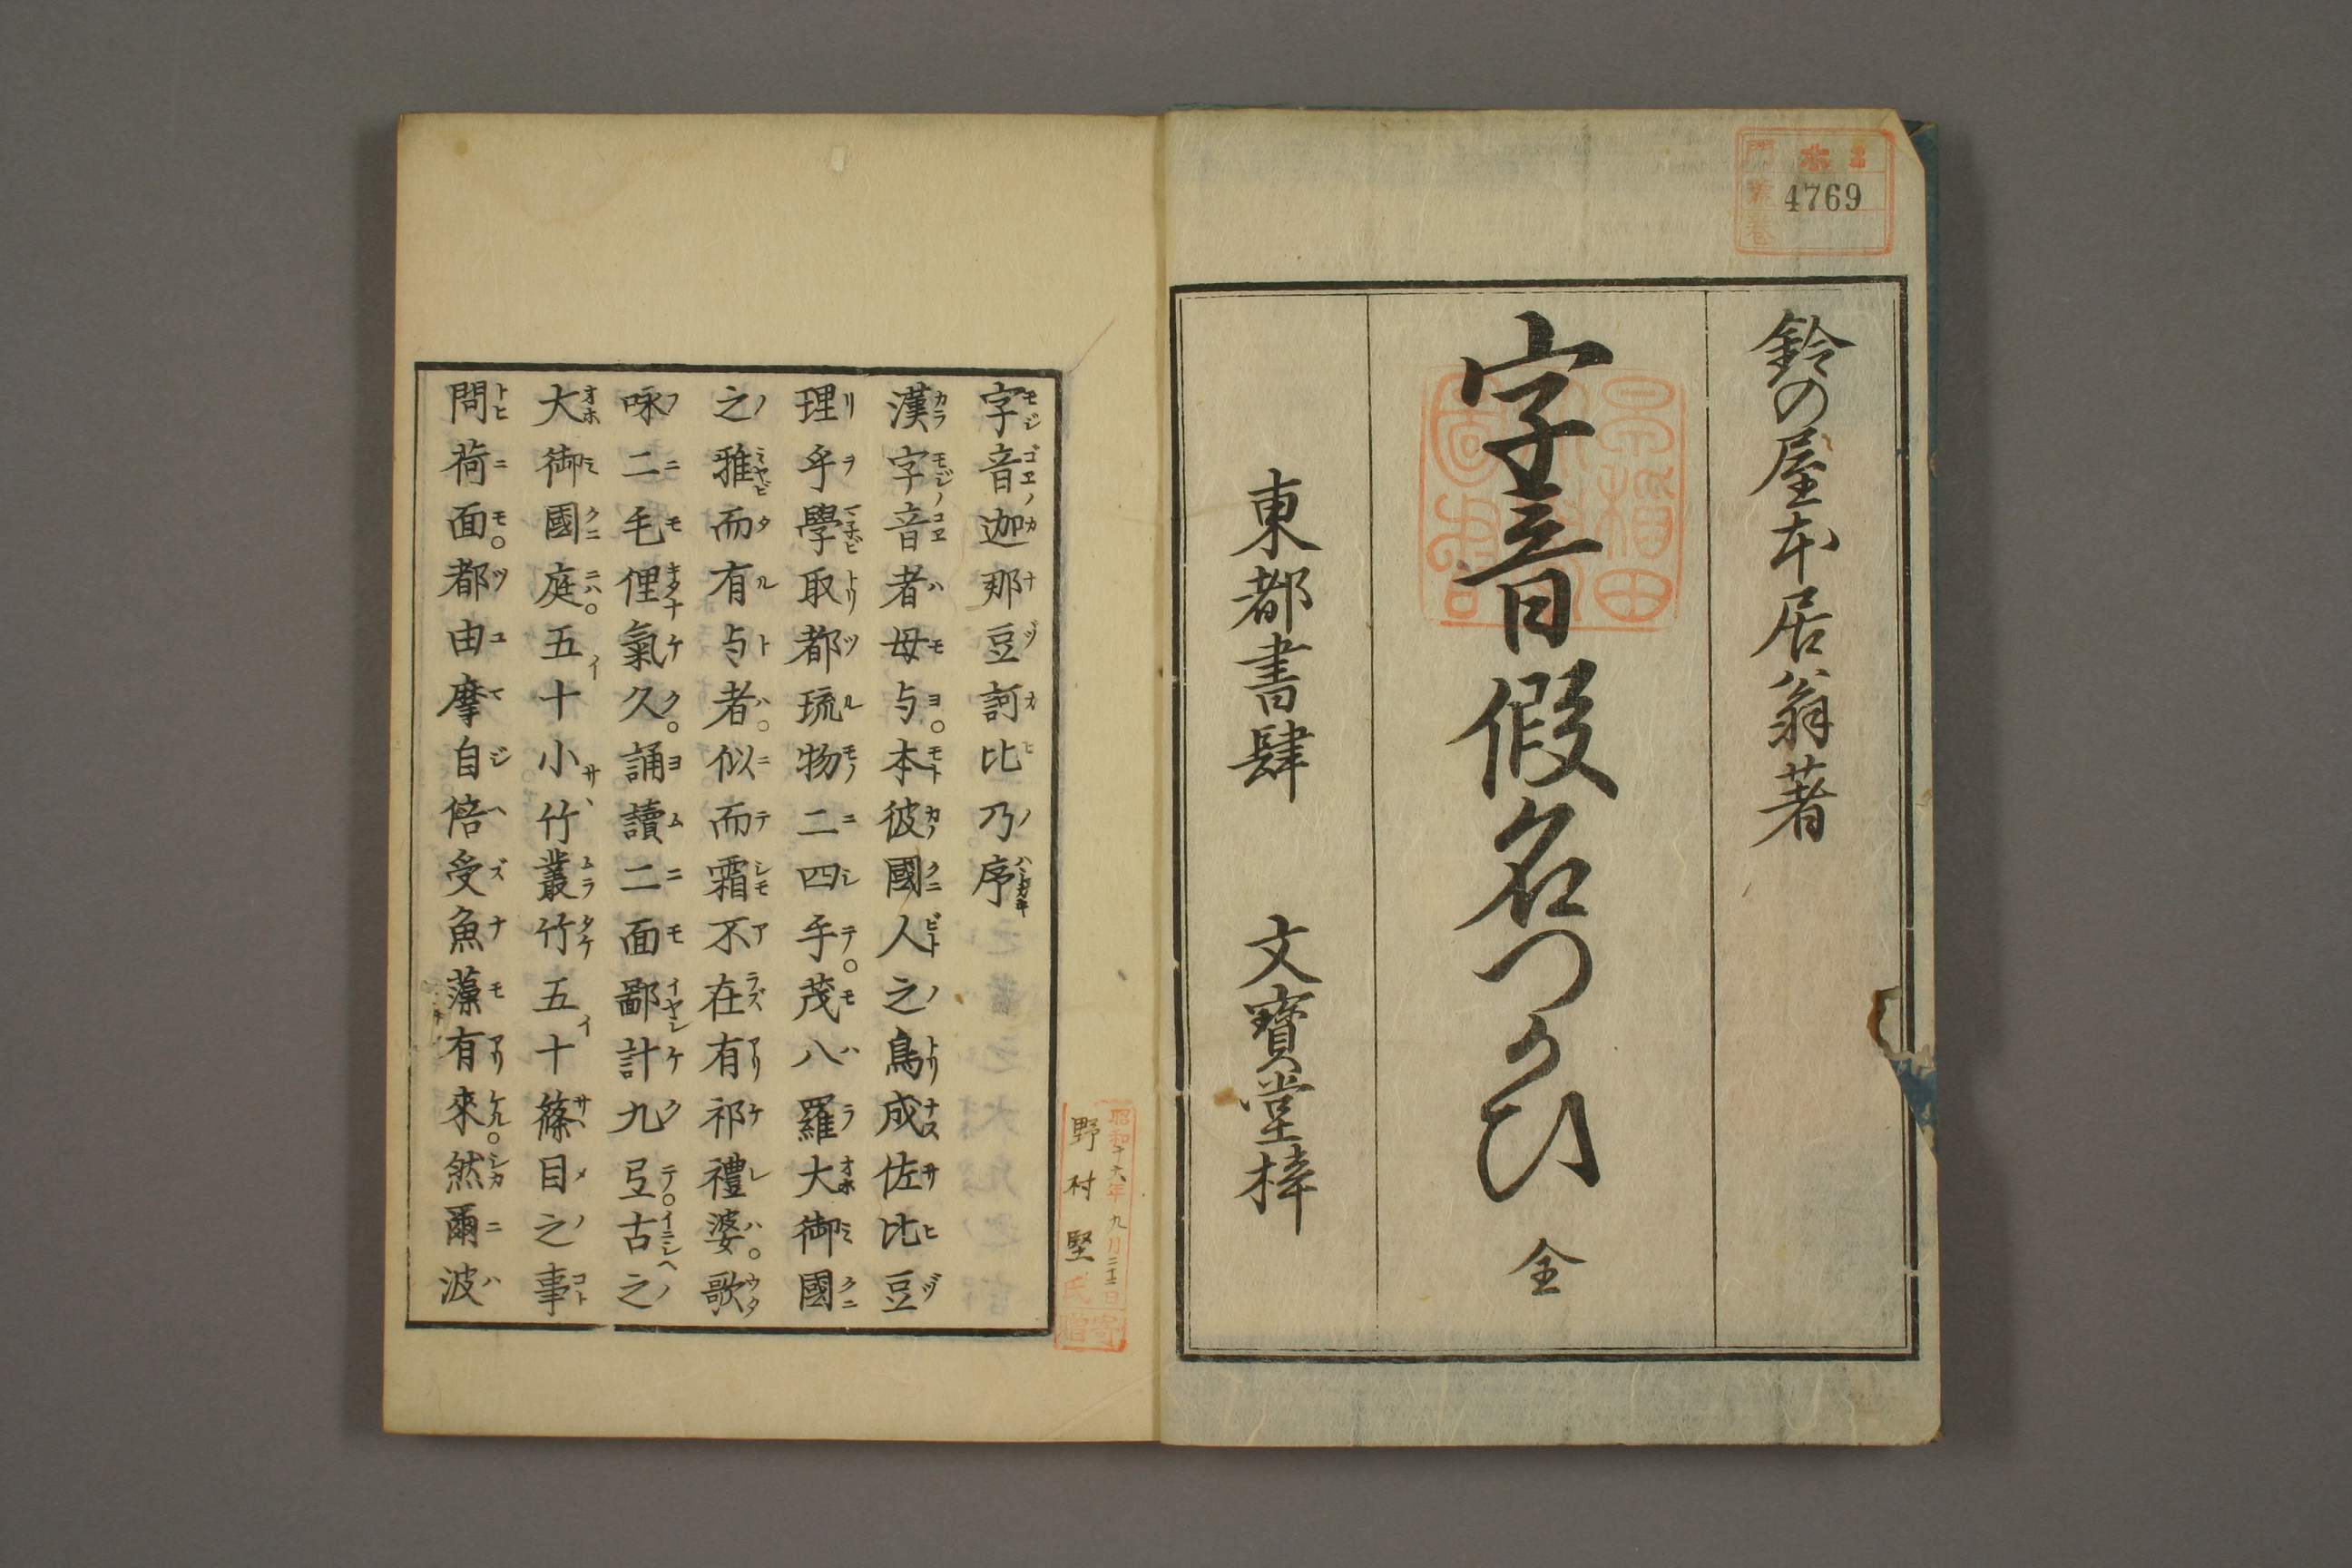 鈴の屋本居翁著
字音假名つかひ 全
東都書肆 文寶堂梓
4769
早稲田
昭和十六年九月二十二日
野村堅氏
寄贈
字音迦那豆訶比乃序
漢字音者母与。本彼國人之鳥成佐比豆
理乎學取都琉物二四手。茂八羅大御國
之雅而有与者。似而霜不在有祁禮婆。歌
咏二毛俚氣久。誦讀二面鄙計九弖。古之
大御國庭。五十小竹叢竹五十篠目之事
問荷面。都由摩自倍受魚藻有來。然爾波